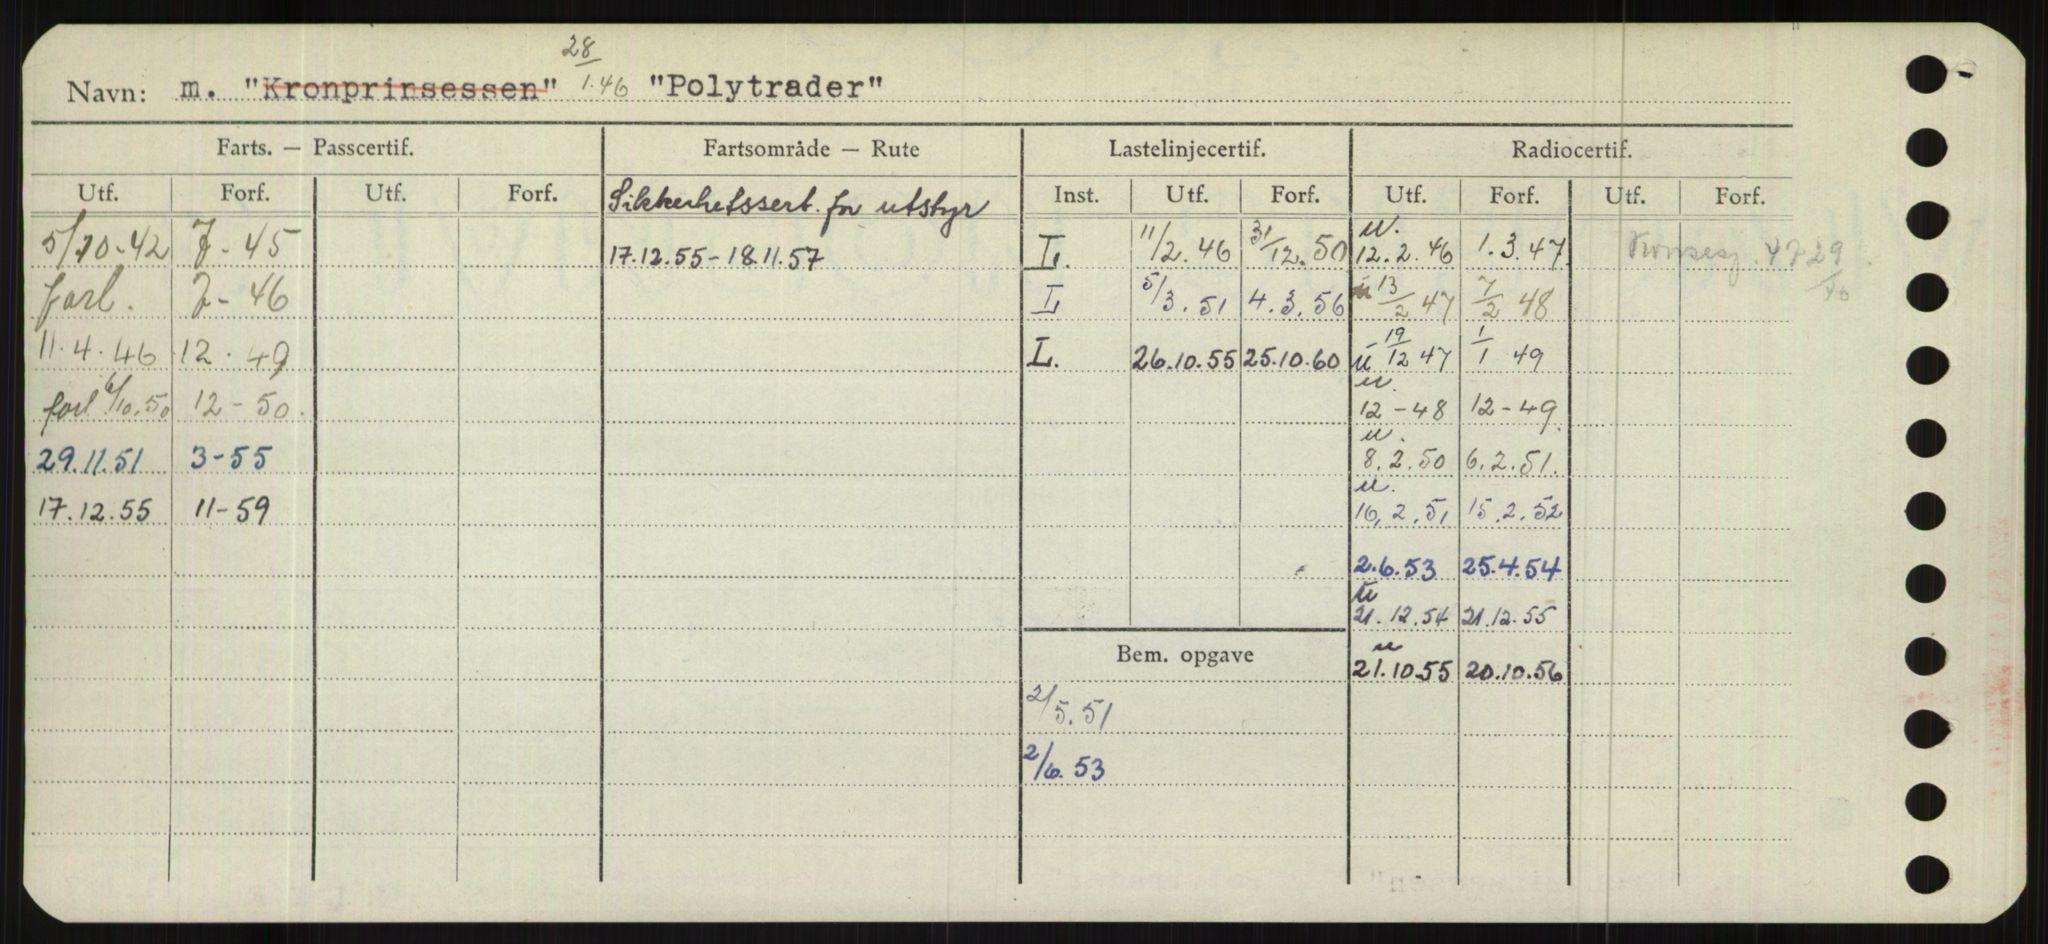 28
Navn: m. "Kronprinsessen" 1.46 "Polytrader"
Farts. — Passcertif. Fartsområde — Rute Lastelinjecertif. Radiocertif.
Utf. Forf. Utf. Forf. Sikkerhetssert. for utstyr Inst. Utf. Forf. Utf. Forf. Utf. Forf.
5/10-42 7-45 17.12.55-18.11.57 L. 11/2.46 31/12.50 u. 12.2.46 1.3.47 47 29/10
forl. 7-46 L 5/3.51 4.3.56 u 13/2 47 7/2 48
11.4.46 12.49 L. 26.10.55 25.10.60 u 19/12 47 1/1 49
forl 6/10.50 12-50. u. 12-48 12-49
29.11.51 3-55 u. 8.2.50 6.2.51.
17.12.55 11-59 u. 16.2.51 15.2.52
2.6.53 25.4.54
u 21.12.54 21.12.55
Bem. opgave u 21.10.55 20.10.56
2/5.51
2/6.53